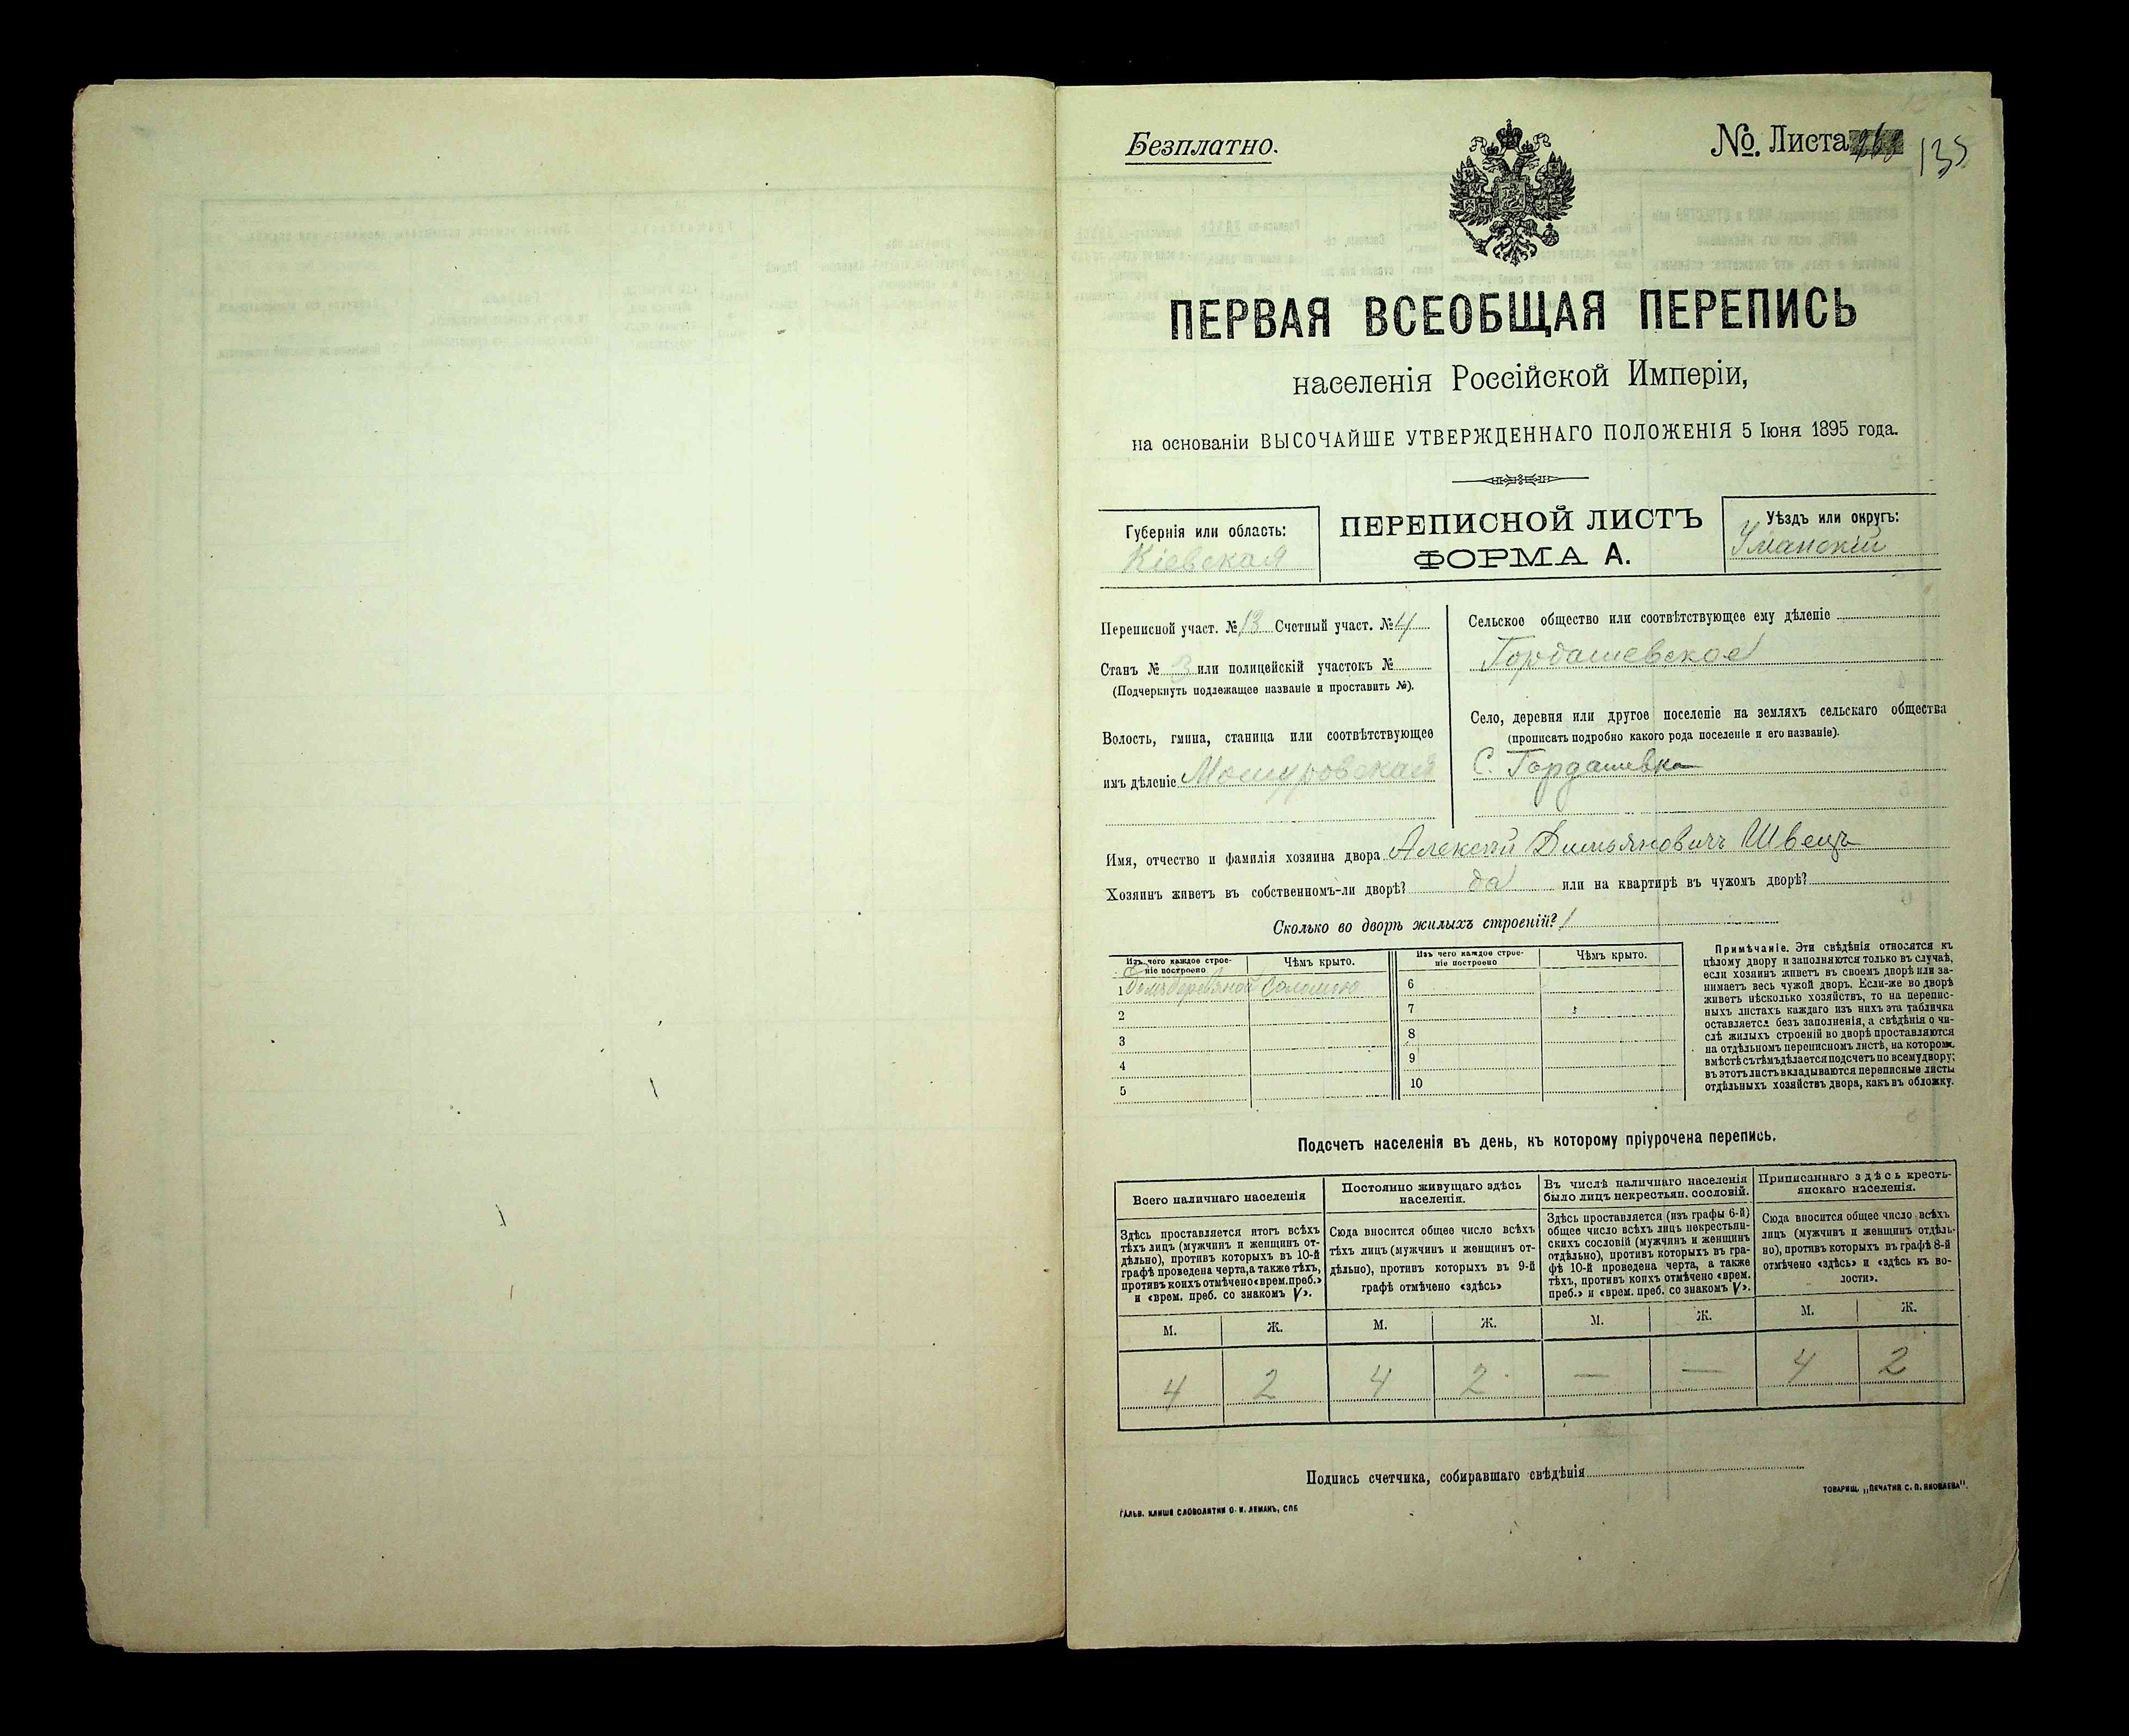 Безплатно.
№. Листа 135
ПЕРВАЯ ВСЕОБЩАЯ ПЕРЕПИСЬ
населенія Россійской Имперіи,
на основаніи ВЫСОЧАЙШЕ УТВЕРЖДЕННАГО ПОЛОЖЕНІЯ 5 Іюня 1895 года.
Губернія или область:
Кіевская
ПЕРЕПИСНОЙ ЛИСТЪ
ФОРМА А.
Уѣздъ или округъ:
Уманскій
Переписной участ. № 13 Счетный участ. № 4
Станъ № 3 или полицейскій участокъ №
(Подчеркнуть подлежащее названіе и проставить №).
Волость, гмина, станица или соотвѣтствующее
имъ дѣленіе Мошуровская
Сельское общество или соотвѣтствующее ему дѣленіе
Гордашевское
Село, деревня или другое поселеніе на земляхъ сельскаго общества
(прописать подробно какого рода поселеніе и его названіе).
С. Гордашевка
Имя, отчество и фамилія хозяина двора Алексѣй Димьяновичъ Швецъ
Хозяинъ живетъ въ собственномъ-ли дворѣ? да или на квартирѣ въ чужомъ дворѣ?
Сколько во дворѣ жилыхъ строеній? 1
Изъ чего каждое строе-
ніе построено
Чѣмъ крыто.
1 Домъ деревяной Соломою
2
3
4
5
Изъ чего каждое строе-
ніе построено
Чѣмъ крыто.
6
7
8
9
10
Примѣчаніе. Эти свѣдѣнія относятся къ
цѣлому двору и заполняются только въ случаѣ,
если хозяинъ живетъ въ своемъ дворѣ или за-
нимаетъ весь чужой дворъ. Если-же во дворѣ
живетъ нѣсколько хозяйствъ, то на перепис-
ныхъ листахъ каждаго изъ нихъ эта табличка
оставляется безъ заполненія, а свѣдѣнія о чи-
слѣ жилыхъ строеній во дворѣ проставляются
на отдѣльномъ переписномъ листѣ, на которомъ
вмѣстѣ съ тѣмъ дѣлается подсчетъ по всему двору;
въ этотъ листъ вкладываются переписные листы
отдѣльныхъ хозяйствъ двора, какъ въ обложку.
Подсчетъ населенія въ день, къ которому пріурочена перепись.
Всего наличнаго населенія
Здѣсь проставляется итогъ всѣхъ
тѣхъ лицъ (мужчинъ и женщинъ от-
дѣльно), противъ которыхъ въ 10-й
графѣ проведена черта, а также тѣхъ,
противъ коихъ отмѣчено «врем. преб.»
и «врем. преб. со знакомъ V».
Постоянно живущаго здѣсь
населенія.
Сюда вносится общее число всѣхъ
тѣхъ лицъ (мужчинъ и женщинъ от-
дѣльно), противъ которыхъ въ 9-й
графѣ отмѣчено «здѣсь»
Въ числѣ наличнаго населенія
было лицъ некрестьян. сословій.
Здѣсь проставляется (изъ графы 6-й)
общее число всѣхъ лицъ некрестьян-
скихъ сословій (мужчинъ и женщинъ
отдѣльно), противъ которыхъ въ гра-
фѣ 10-й проведена черта, а также
тѣхъ, противъ коихъ отмѣчено «врем.
преб.» и «врем. преб. со знакомъ V».
Приписаннаго здѣсь кресть-
янскаго населенія.
Сюда вносится общее число всѣхъ
лицъ (мужчинъ и женщинъ отдѣль-
но), противъ которыхъ въ графѣ 8-й
отмѣчено «здѣсь» и «здѣсь къ во-
лости».
М. Ж. М. Ж. М. Ж. М. Ж.
4 2 4 2 — — 4 2
Подпись счетчика, собиравшаго свѣдѣнія
ГАЛЬВ. КЛИШЕ СЛОВОЛИТНИ О. И. ЛЕМАНЪ, СПБ
ТОВАРИЩ. „ПЕЧАТНЯ С. П. ЯКОВЛЕВА".